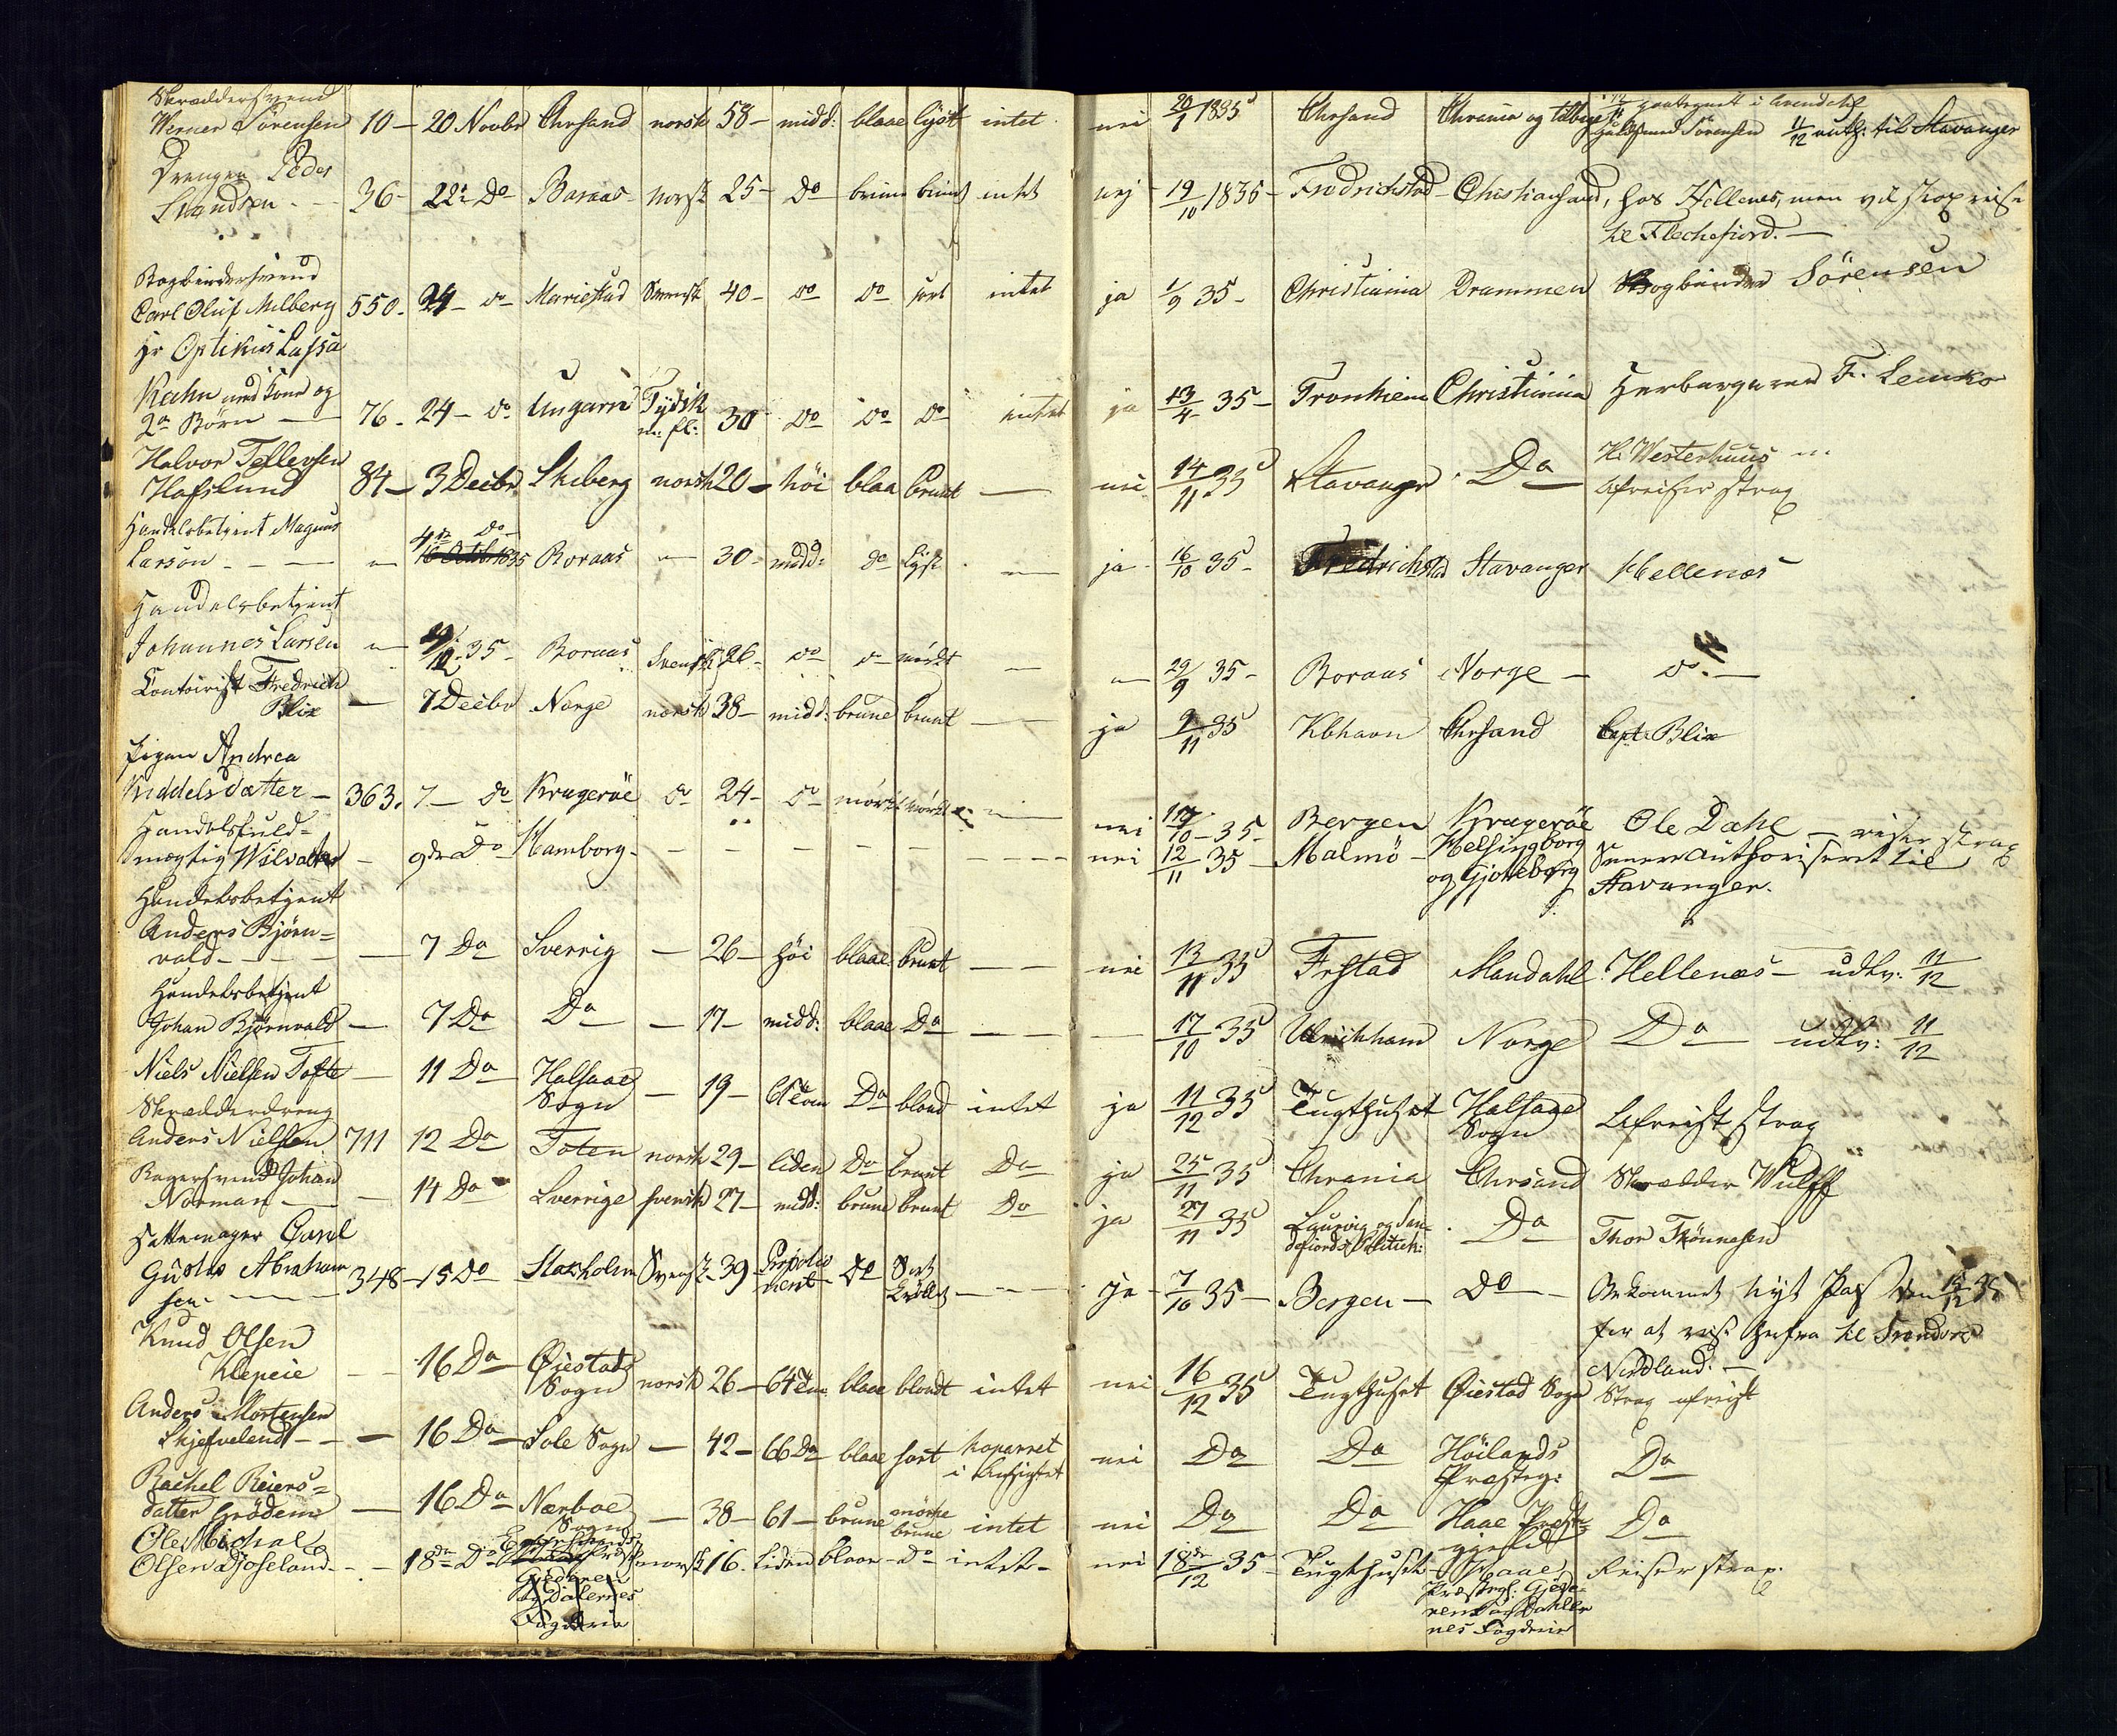 Skræddersvend
Werner Sörensen 10 — 20 Novbr Chrsand norsk 58 — midd: blaae lyst intet nei 20/1 1835 Chrsand Chrania og tilbage
Sörensen 11/12 auth: til Stavanger
Drengen Peder
Svendsen 36 — 22 Do Boraas norsk 25 — Do brune brunt intet nej 19/10 1835 — Fredrichstad Christiansand, hos Hellenes, men vil strax reise
til Flechefiord. —
Bogbindersvend
Carl Oluf Milberg 550 — 24 — do Mariestad Svensk 40 — do do sort intet ja 1/9 35 — Christiania Drammen Bogbinder Sörensen
Hr Optikus Lassa
Kahn med Kone og
2 Börn — 76 — 24 — do Ungarn Tydsk 30 do do do intet ja 13/4 35 — Tronhiem Christiania Herbergeren Fr. Lemko
Halvor Tellevsen
Hafslund 84 — 3 Decbr Skiberg norsk 20 — höi blaa brunt — nei 14/11 35 Stavanger Do H. Westerhuus
Afreiser strax
Handelsbetjent Magnus
Larson — 4de do Boraas — 30 — midd: do lyst — ja 16/10 35 — Fredrichstad Stavanger Hellenes
Handelsbetjent
Johannes Larsen — 35 — Boraas Svensk 26 — do do mörkt — 29/9 35 — Boraas Norge — do —
Contoirist Fredrich
Blix — 7 Decbr Norge norsk 38 — midd: brune brunt — ja 9/11 35 Kbhavn Chrsand Capt. Blix
Pigen Andrea
Kiddelsdatter — 363. 7 — do Kragerøe do 24 — do mörke mörkt — nei 35 — Bergen Kragerøe Ole Dahl — reiser strax
Handelsfuld-
mægtig — 9de Do Hamborg — — — — — nei 12/11 35 — Malmö — Helsingborg
og Gjöteborg Senere Authoriseret til
Stavanger.
Handelsbetjent
Anders Björn-
vald — 7 Do Sverrig — 26 — höi blaae brunt — nei 13/11 35 Frstad Mandahl Hellenæs — udlv: 11/12
Handelsbetjent
Johan Björnvald — 7 Do Do — 17 — midd: blaae Do — — 17/10 35 Ulrichham Norge Do udlv: 11/12
Niels Nielsen Tofte — 11 Do Halsaae
Sogn — 19 — Do blond intet ja 11/12 35 Tugthuset Halsaae
Sogn Afreist strax
Skrædderdreng
Anders Nielsen 711 12 Do Toten norsk 29 — liden Do brunt Do ja 25/11 35 Chrania Chrsand Skrædder Wulff
Bagersvend Johan
Norman — 14 Do Sverrige svensk 27 — midd: brune brunt Do ja 27/11 35 Laurvig og San-
defiords Do Thor Thönnesen
Hattemager Carel
Gustav Abraham
sen 348 — 15 Do Stokholm Svensk 39 — Propotio
neret Do Sort
— ja — 7/10 35 — Bergen — Do — Bekommet nyt Pas den 15/12 35
for at reise herfra til
Nordland. —
Knud Olsen
Klepeie — 16 Do Öiestads
Sogn norsk 26 — 64 Tm blaae blondt intet nei 16/12 35 Tugthuset Öiestad Sogn Strax afreist
Anders Mortensen
Skjefveland — 16 Do Sole Sogn — 42 — 66 Do blaae sort koparret
i Ansigtet nei Do Do Höilands
Præsteg: Do
Rachel Reiers-
datter Grödem — 16 Do Nærboe
Sogn — 38 — 61 — brune mörke
brune intet nei Do Do Haae Præste-
gjeld Do
Ole Michal
Olsen Djoseland — 18de Do norsk 16. liden blaae — Do intet — nei 18de/12 35 — Tugthuset Haae Reiser strax.
Dalernes
Fogderie
Præstegj: Gjede-
ren og Dahler
nes Fogderie